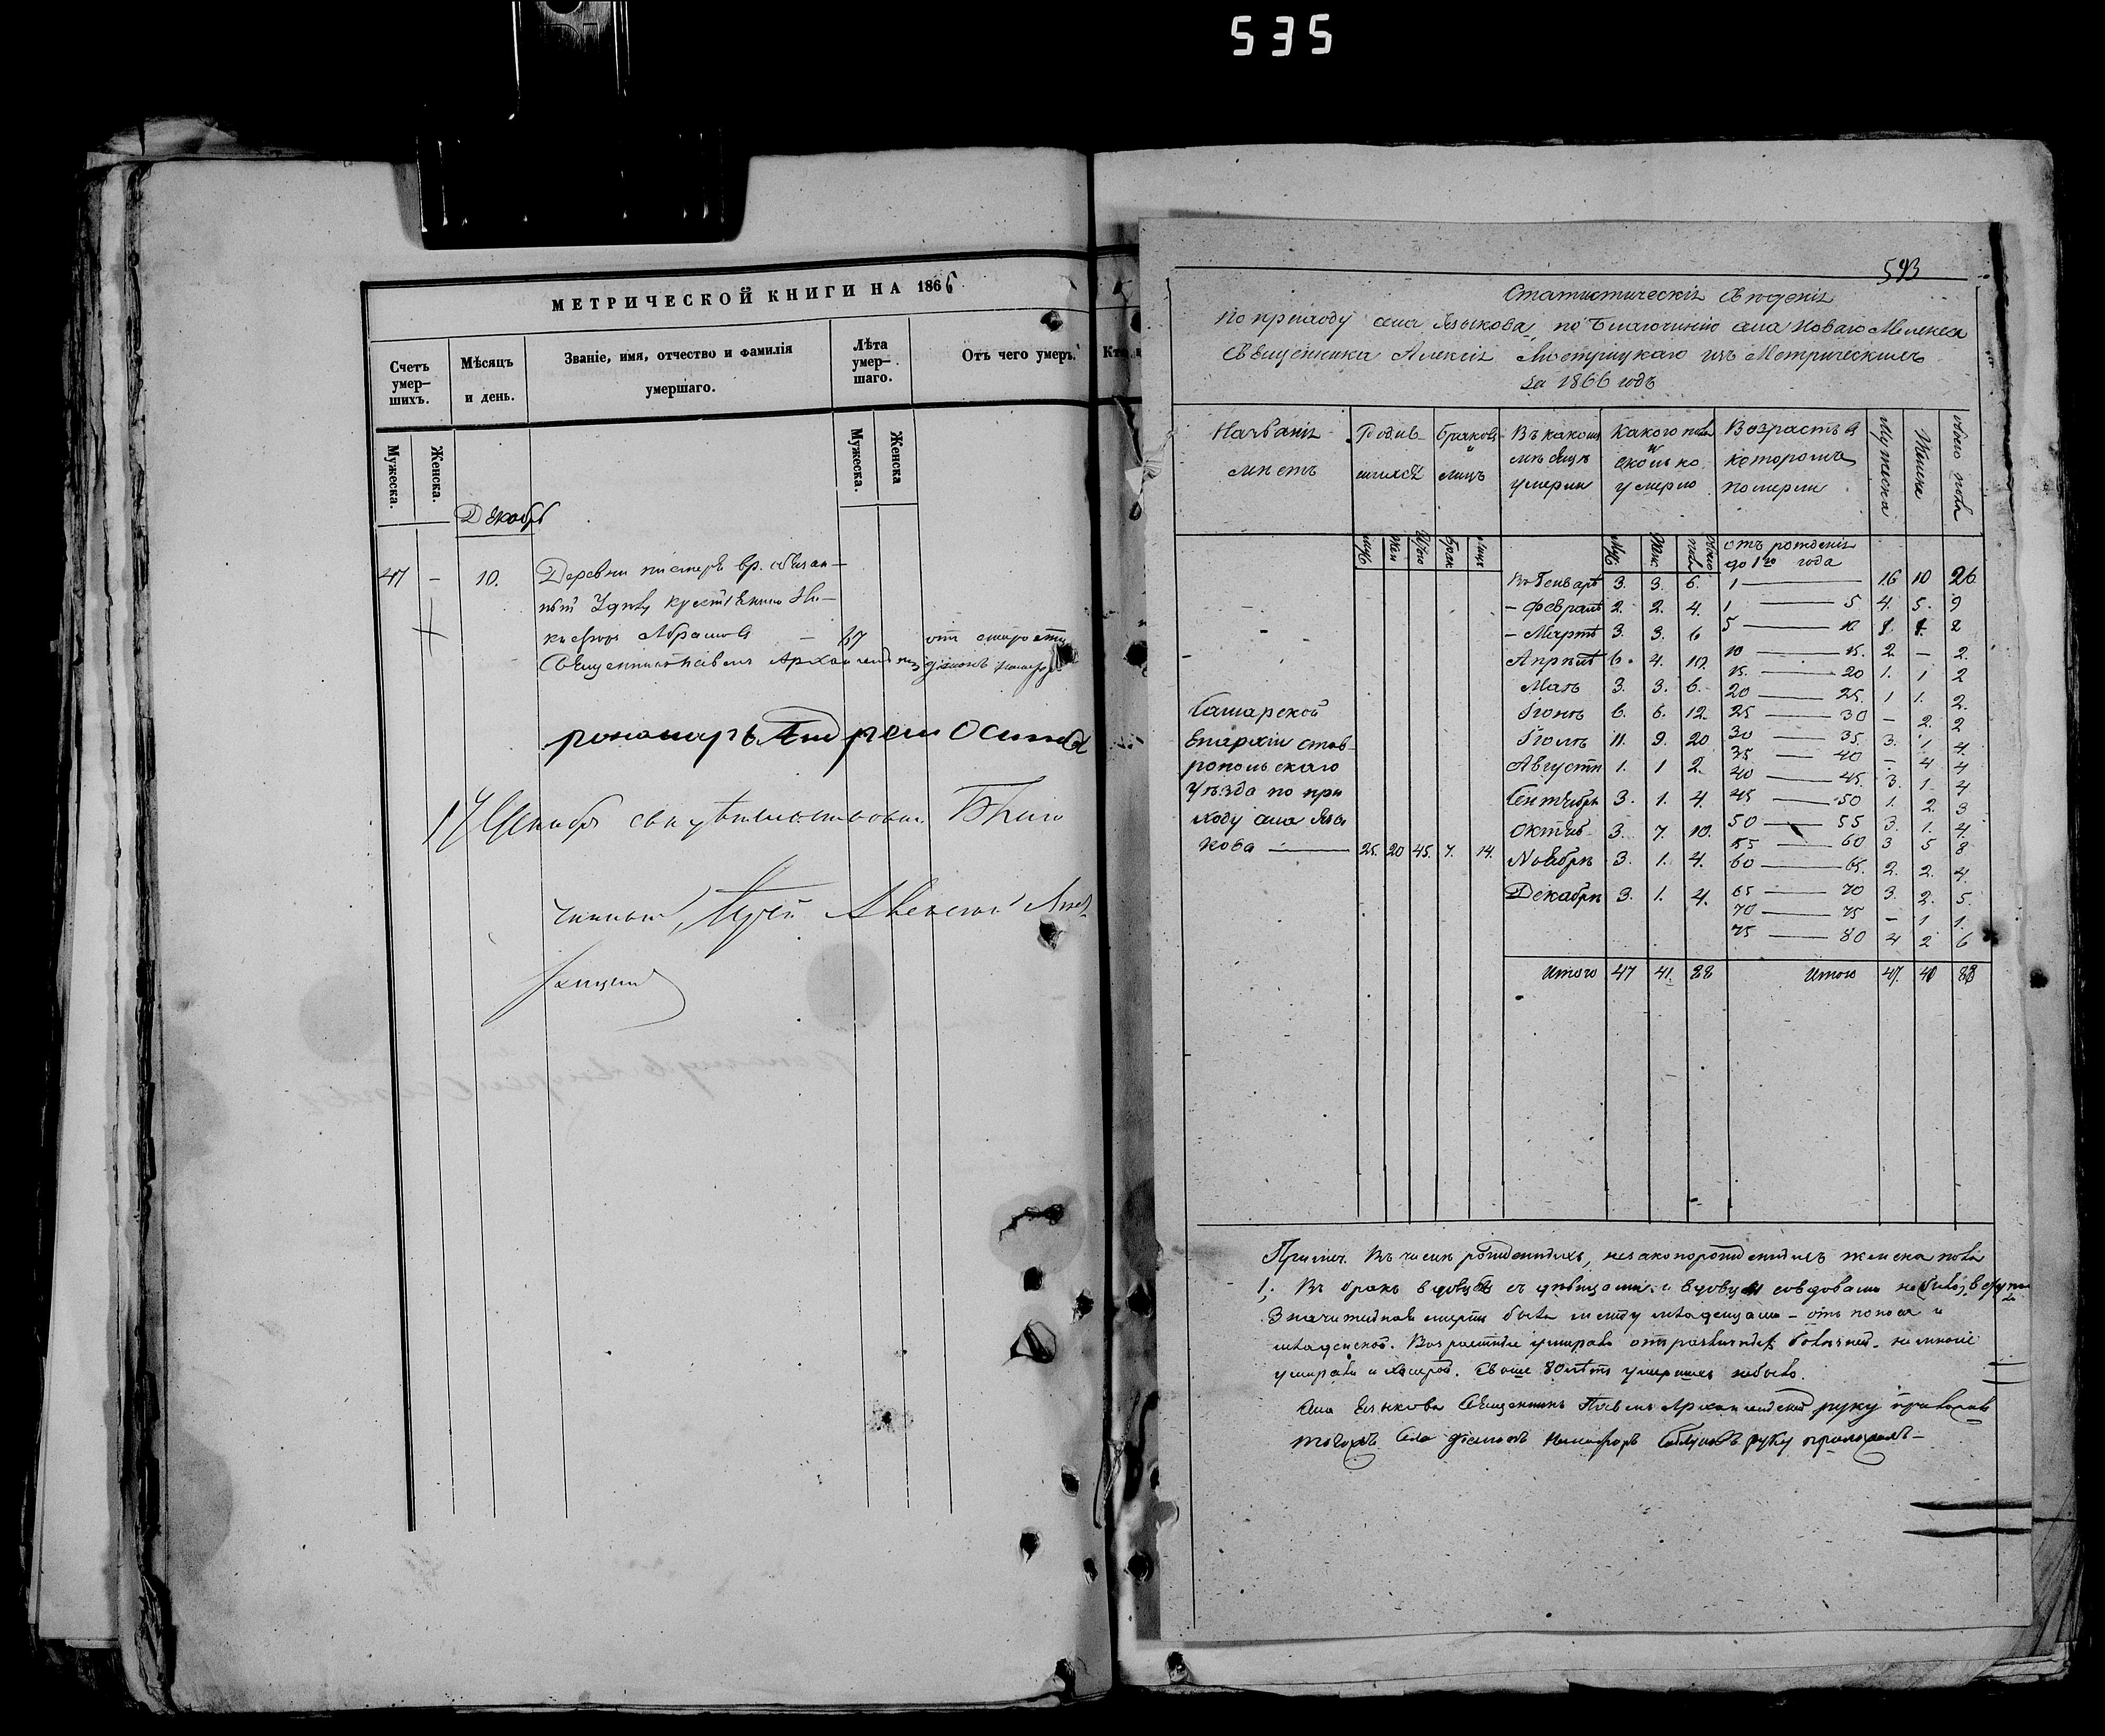 535
МЕТРИЧЕСКОЙ КНИГИ НА 1866
Счетъ умер–шихъ.
Мѣсяцъ и день.
Званіе, имя, отчество и фамилія умершаго.
Лѣта умер–шаго.
Отъ чего умеръ.
Мужеска.
Женска.
Мужеска.
Женска
Декабрь
47 – 10. Деревни
кифоръ Абрамовъ – 67 отъ старости
Священникъ Павелъ
пономарь Андрей Осиповъ
17 Декабря свидѣтельствовалъ Бла
чинный, Іерей Алексій
593
Статистическія Свѣденія
по приходу села Языкова, по Благочинію села Новаго Мелекеса
Священника Алексія изъ Метрическихъ
за 1866 годъ
Названіе мѣстъ
Родив–шихся
Браковъ и лицъ
Въ какомъ мѣсяцѣ умерли
Какого пола и сколько умерло
Возрастъ въ которомъ померли
Мужеска
Женска
обоего пола
Муж
Жен
Обоего
Брак
Лицъ
Муж.
Жен.
обоего пола
отъ рожденія до 1го года
Въ Генварѣ 3. 3. 6. 1 — 16 10 26
– Февралѣ 2. 2. 4. 1 — 5 4. 5. 9
– Мартѣ 3. 3. 6 5 — 10 1. 1. 2
Апрѣлѣ 6. 4. 10. 10 — 15. 2 – 2.
15. — 20 1. 1 2
Маѣ 3. 3. 6. 20 — 25. 1 1. 2.
Самарской Іюнѣ 6. 6. 12. 25 — 30 – 2. 2
Епархіи став– Іюлѣ 11. 9. 20 30 — 35. 3. 1 4.
35 — 40 – 4 4
ропольскаго Августѣ 1. 1 2. 40 — 45. 3. 1. 4
уѣзда по при Сентябрѣ 3. 1. 4. 45 — 50 1. 2. 3
ходу села Язы Октяб. 3. 7. 10. 50 — 55 3. 1. 4.
55 — 60 3 5 8
кова — 25. 20 45. 7. 14. Ноябрѣ 3. 1. 4. 60 — 65. 2. 2. 4.
Декабрѣ 3. 1. 4. 65 — 70 3. 2. 5.
70 — 75 – 1 1.
75 — 80 4 2 6
Итого 47 41. 88 Итого 47. 40 88
Примѣч. Въ числѣ рожденныхъ, незаконорожденныхъ женска пола
1. Въ бракъ вдовцовъ съ дѣвицами и вдовцы со вдовами не было
Значительная смерть была между младенцами – отъ поноса и
младенской. Возрастные умирали отъ различныхъ болѣзней. немногіе
умирали и холерой. Свыше 80 лѣтъ умершихъ небыло.
Села Языкова Священникъ Павелъ руку приложилъ
тогожъ Села діаконъ Никифоръ руку приложилъ–